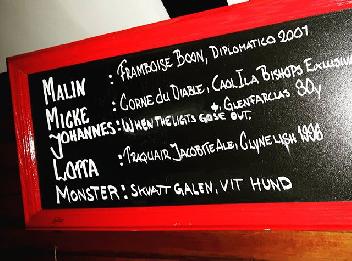 MALIN : FRAMBOISE BOON, DIPLOMATICO 2001
MICKE : CORNE DU DIABLE, CAOL ILA BISHOPS EXCLUSIV
JOHANNES: WHEN THE LIGTS GOSE OUT, GLENFARCLAS 30y
LOTTA : TRAQUAIR JACOBITE ALE, CLYNELISH 1996
MONSTER: SKVATT GALEN, VIT HUND